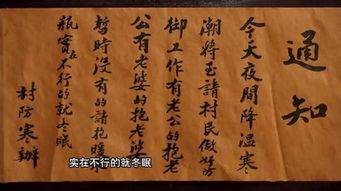 通知
今天夜間降溫寒
潮將至請村民做好防
御工作有老公的抱老
公有老婆的抱老婆
暫時沒有的請抱暖
瓶實在不行的就冬眠
村防寒辦
实在不行的就冬眠